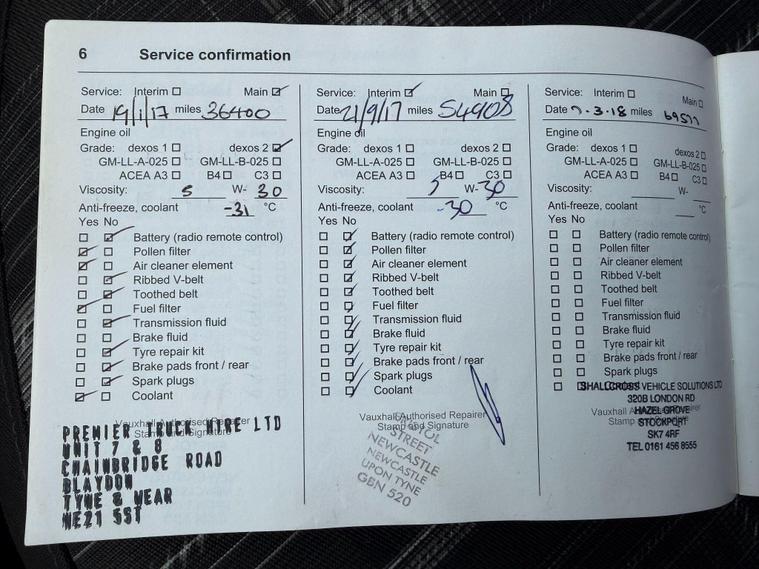 6 Service confirmation
Service: Interim ☐ Main ☑
Date 19/1/17 miles 36400
Engine oil
Grade: dexos 1 ☐ dexos 2 ☑
GM-LL-A-025 ☐ GM-LL-B-025 ☐
ACEA A3 ☐ B4 ☐ C3 ☐
Viscosity: 5 W- 30
Anti-freeze, coolant -31 °C
Yes No
Battery (radio remote control)
Pollen filter
Air cleaner element
Ribbed V-belt
Toothed belt
Fuel filter
Transmission fluid
Brake fluid
Tyre repair kit
Brake pads front / rear
Spark plugs
Coolant
Vauxhall Authorised Repairer
Stamp and Signature
PREMIER TRUCK HIRE LTD
UNIT 7 & 8
CHAINBRIDGE ROAD
BLAYDON
TYNE & WEAR
NE21 5ST
Service: Interim ☑ Main ☐
Date 21/9/17 miles 54908
Engine oil
Grade: dexos 1 ☐ dexos 2 ☐
GM-LL-A-025 ☐ GM-LL-B-025 ☐
ACEA A3 ☐ B4 ☐ C3 ☐
Viscosity: W- 30
Anti-freeze, coolant -30 °C
Yes No
Battery (radio remote control)
Pollen filter
Air cleaner element
Ribbed V-belt
Toothed belt
Fuel filter
Transmission fluid
Brake fluid
Tyre repair kit
Brake pads front / rear
Spark plugs
Coolant
Vauxhall Authorised Repairer
Stamp and Signature
STREET
NEWCASTLE
NEWCASTLE
UPON TYNE
GBN 520
Service: Interim ☐ Main ☐
Date 7-3-18 miles 69577
Engine oil
Grade: dexos 1 ☐ dexos 2 ☐
GM-LL-A-025 ☐ GM-LL-B-025 ☐
ACEA A3 ☐ B4 ☐ C3 ☐
Viscosity: W-
Anti-freeze, coolant °C
Yes No
Battery (radio remote control)
Pollen filter
Air cleaner element
Ribbed V-belt
Toothed belt
Fuel filter
Transmission fluid
Brake fluid
Tyre repair kit
Brake pads front / rear
Spark plugs
SHALLCROSS VEHICLE SOLUTIONS LTD
320B LONDON RD
HAZEL GROVE
STOCKPORT
SK7 4RF
TEL 0161 456 8555